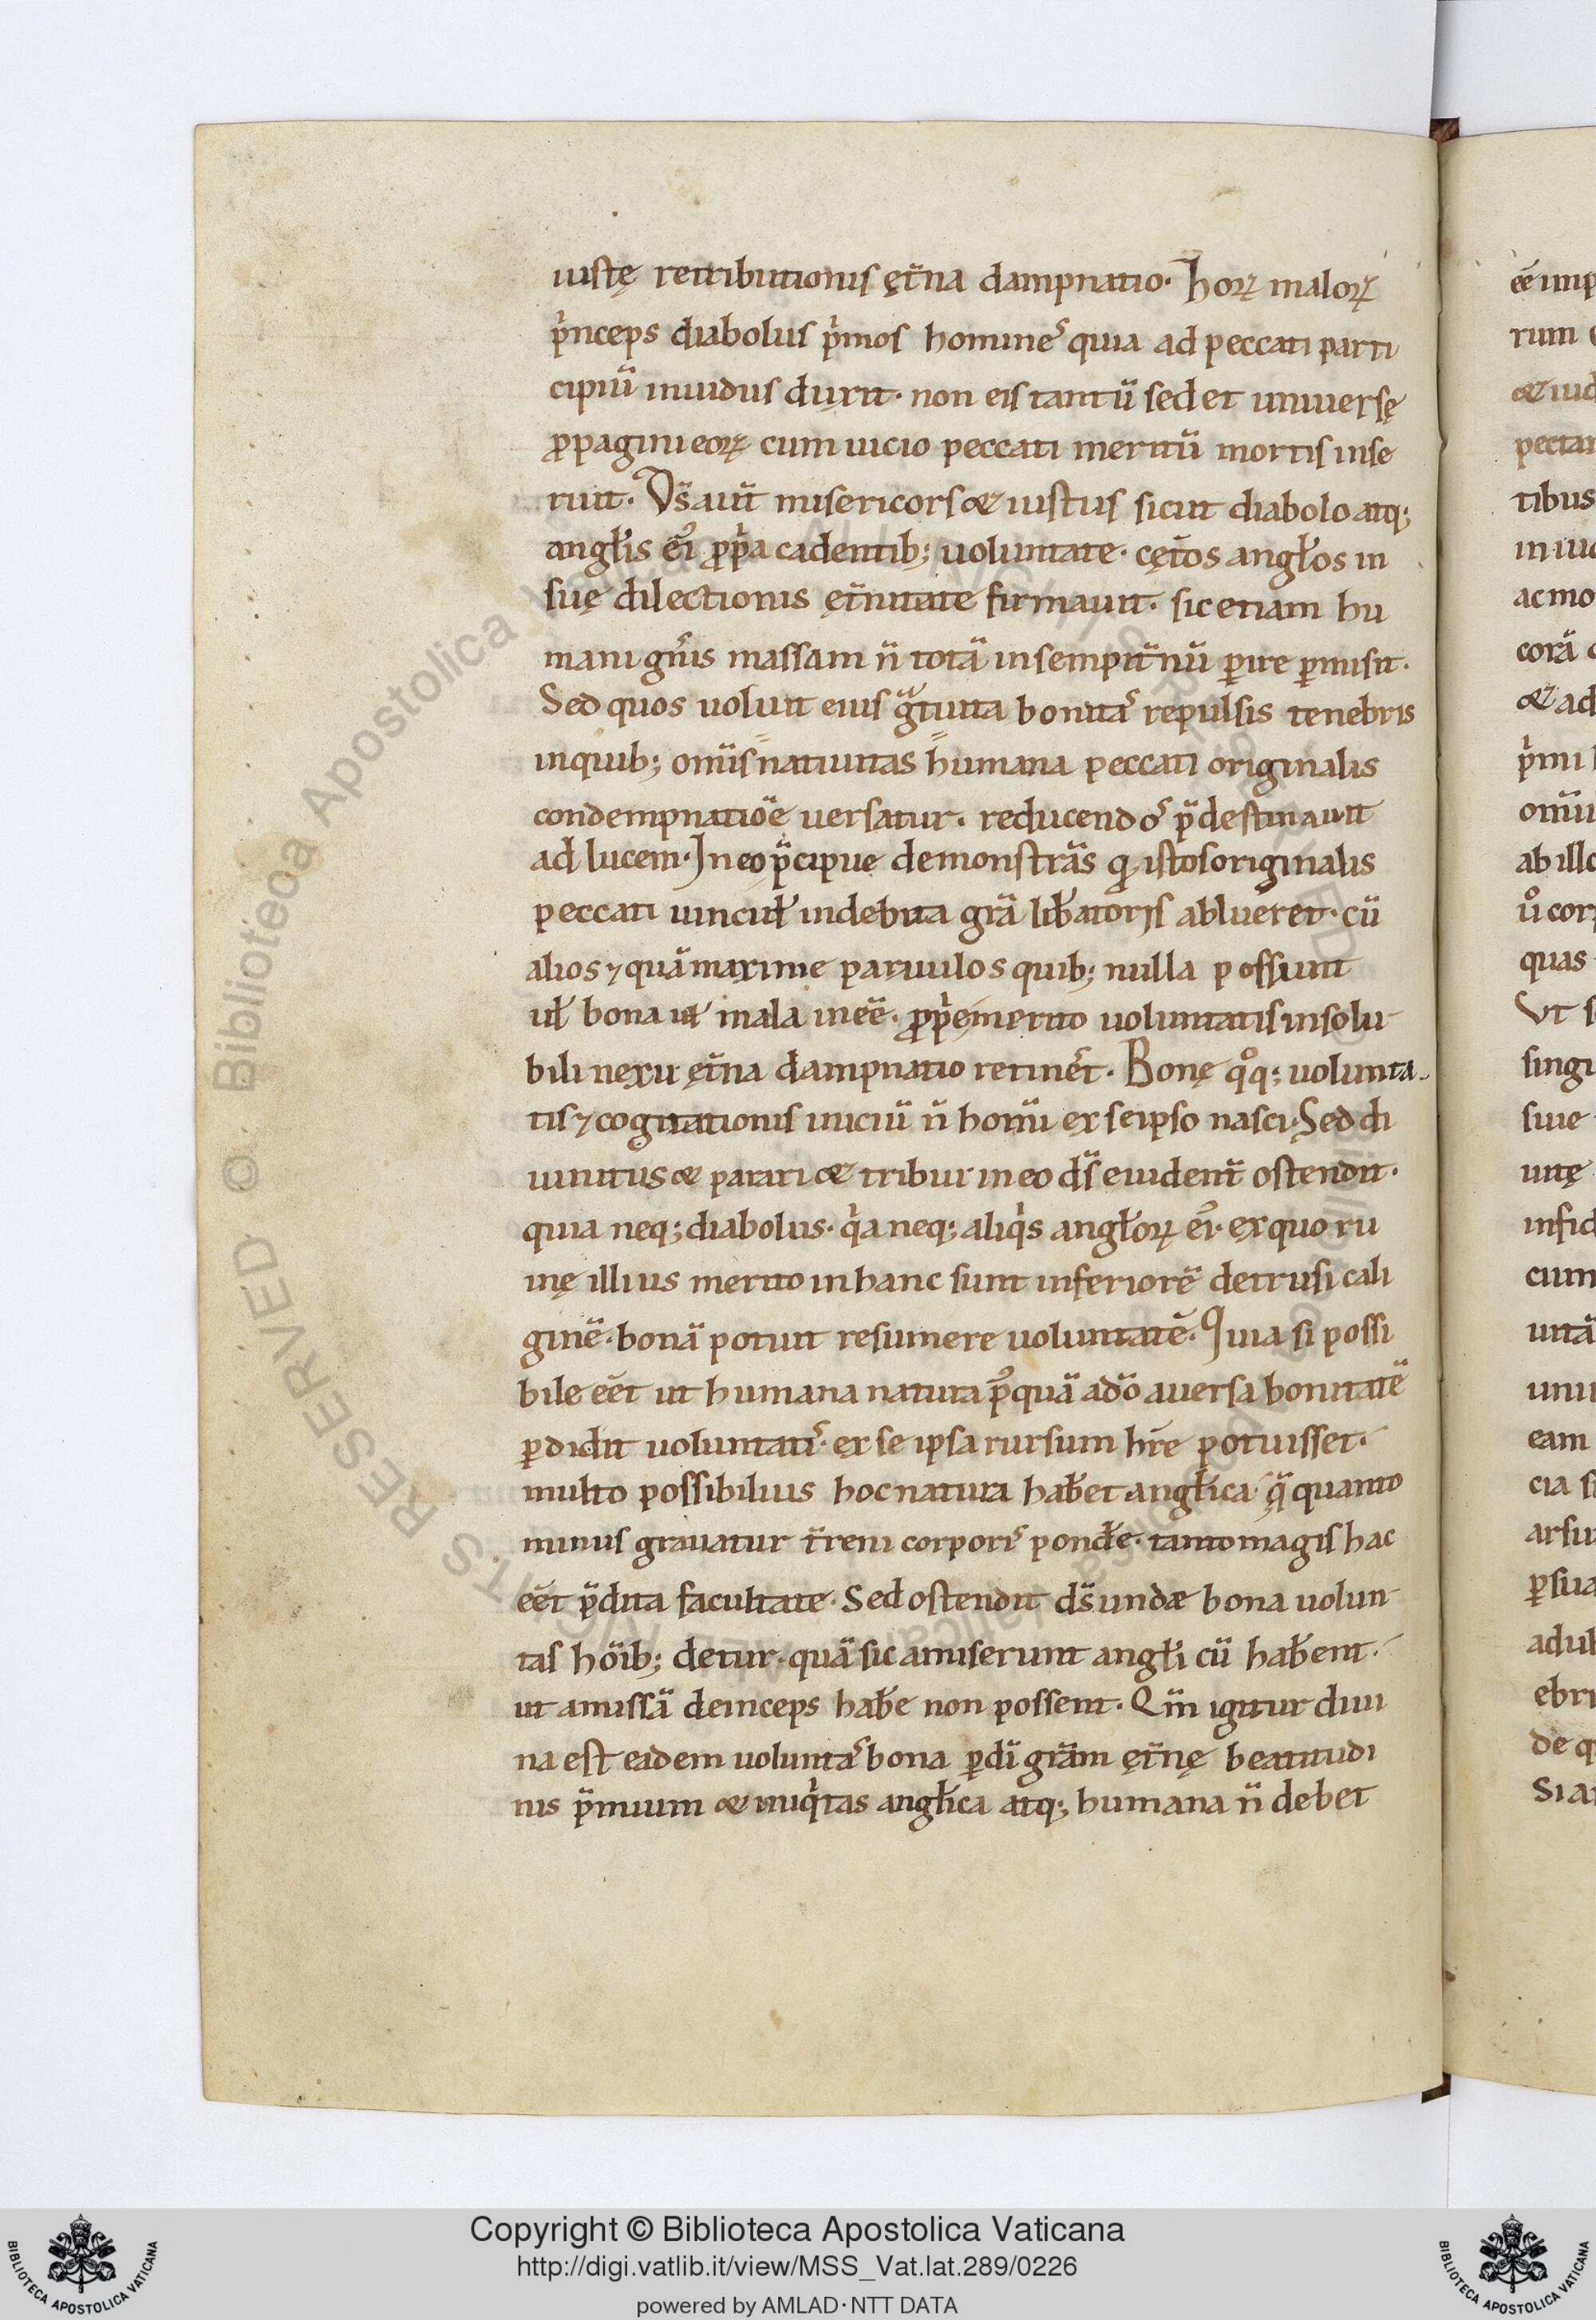 iustę retributionis ęt̄na dampnatio. Horꝝ malorꝝ
p͛nceps diabolus p͛mos homineˢ quia ad peccati parti
cipiū inuidus duxit. non eis tantū sed et uniuersę
ꝓpagini eorꝝ cum uicio peccati meritū mortis inse
ruit. D̄s aut̄ misericors & iustus sicut diabolo atq;
angl̄is ei᷒ ꝓp͛a cadentib; uoluntate. cęt̄os angl̄os in
suę dilectionis ęt̄nitate firmauit. sic etiam hu
mani gn̄is massam n̄ totā in sempit̄nū ꝑire ꝑmisit.
Sed quos uoluit eius gᵃtuita bonitaˢ repulsis tenebris
in quib; om̄is natiuitas humana peccati originalis
condempnatiōe uersatur. reducendoˢ p̄destinauit
ad lucem. In eo p̄cipue demonstrās qđ istos originalis
peccati uincul̄ indebita grā lib̄atoris ablueret. cū
alios ⁊ quā maxime paruulos quib; nulla possunt
ul̄ bona ul̄ mala inēe. ꝓp͛e merito uoluntatis insolu-
bili nexu ęt̄na dampnatio retinēt. Bonę qͦq; uolunta-
tis ⁊ cogitationis iniciū n̄ homī ex se ipso nasci. Sed di
uinitus & parari & tribui in eo d̄s euident̄ ostendit.
quia neq; diabolus. q͛a neq; aliq͛s angl̄orꝝ ei᷒. ex quo ru
inę illius merito in hanc sunt inferiorē detrusi cali
ginē. bonā potuit resumere uoluntatē. Quia si possi
bile eēt ut humana natura p᷒quā a dō auersa bonitatē
ꝑdidit uoluntatiˢ. ex se ipsa rursum hr̄e potuisset.
multo possibilius hoc natura hab̄et angl̄ica. q̄ quanto
minus grauatur t̄reni corporiˢ pond̄e. tanto magis hac
eēt p̄dita facultate. Sed ostendit d̄s unde bona uolun-
tas hōib; detur. quā sic amiserunt angl̄i cū hab̄ent.
ut amissā deinceps hab̄e non possent. Qm̄ igitur diui
na est eadem uoluntaˢ bona ꝑ dī grām ęt̄nę beatitudi
nis p̄mium & iniq͛tas angl̄ica atq; humana n̄ debet
Copyright © Biblioteca Apostolica Vaticana
http://digi.vatlib.it/view/MSS_Vat.lat.289/0226
powered by AMLAD·NTT DATA